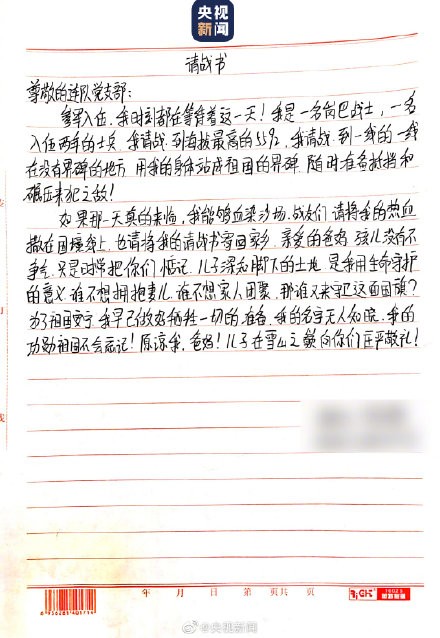 央视
新闻
请战书
尊敬的连队党支部：
入伍，我时刻都在等待着这一天！我是一名岗巴战士，一名
入伍两年的士兵，我请战，到海拔最高的5592，我请战，到一线的一线
在没有界碑的地方，用我的身体站成祖国的界碑，随时准备抗击和
碾压来犯之敌！
如果那一天真的来临，我能够血染沙场，战友们请将我的热血
撒在国境线上，也请将我的请战书寄回家乡，亲爱的爸妈，孩儿没有不
争气，只是时常把你们惦记，儿子深知脚下的土地，是我用生命守护
的意义，谁不想拥抱妻儿，谁不想家人团聚，那谁又来守卫这面国旗？
为了祖国安宁，我早已做好牺牲一切的准备，我的名字无人知晓，我的
功勋祖国不会忘记！原谅我，爸妈！儿子在雪山之巅向你们庄严敬礼！
年 月 日 第 页共 页
@央视新闻